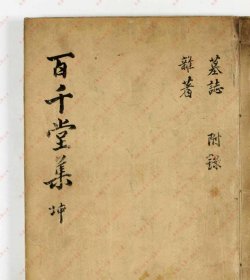 墓誌 附錄
雜著
百千堂集 坤